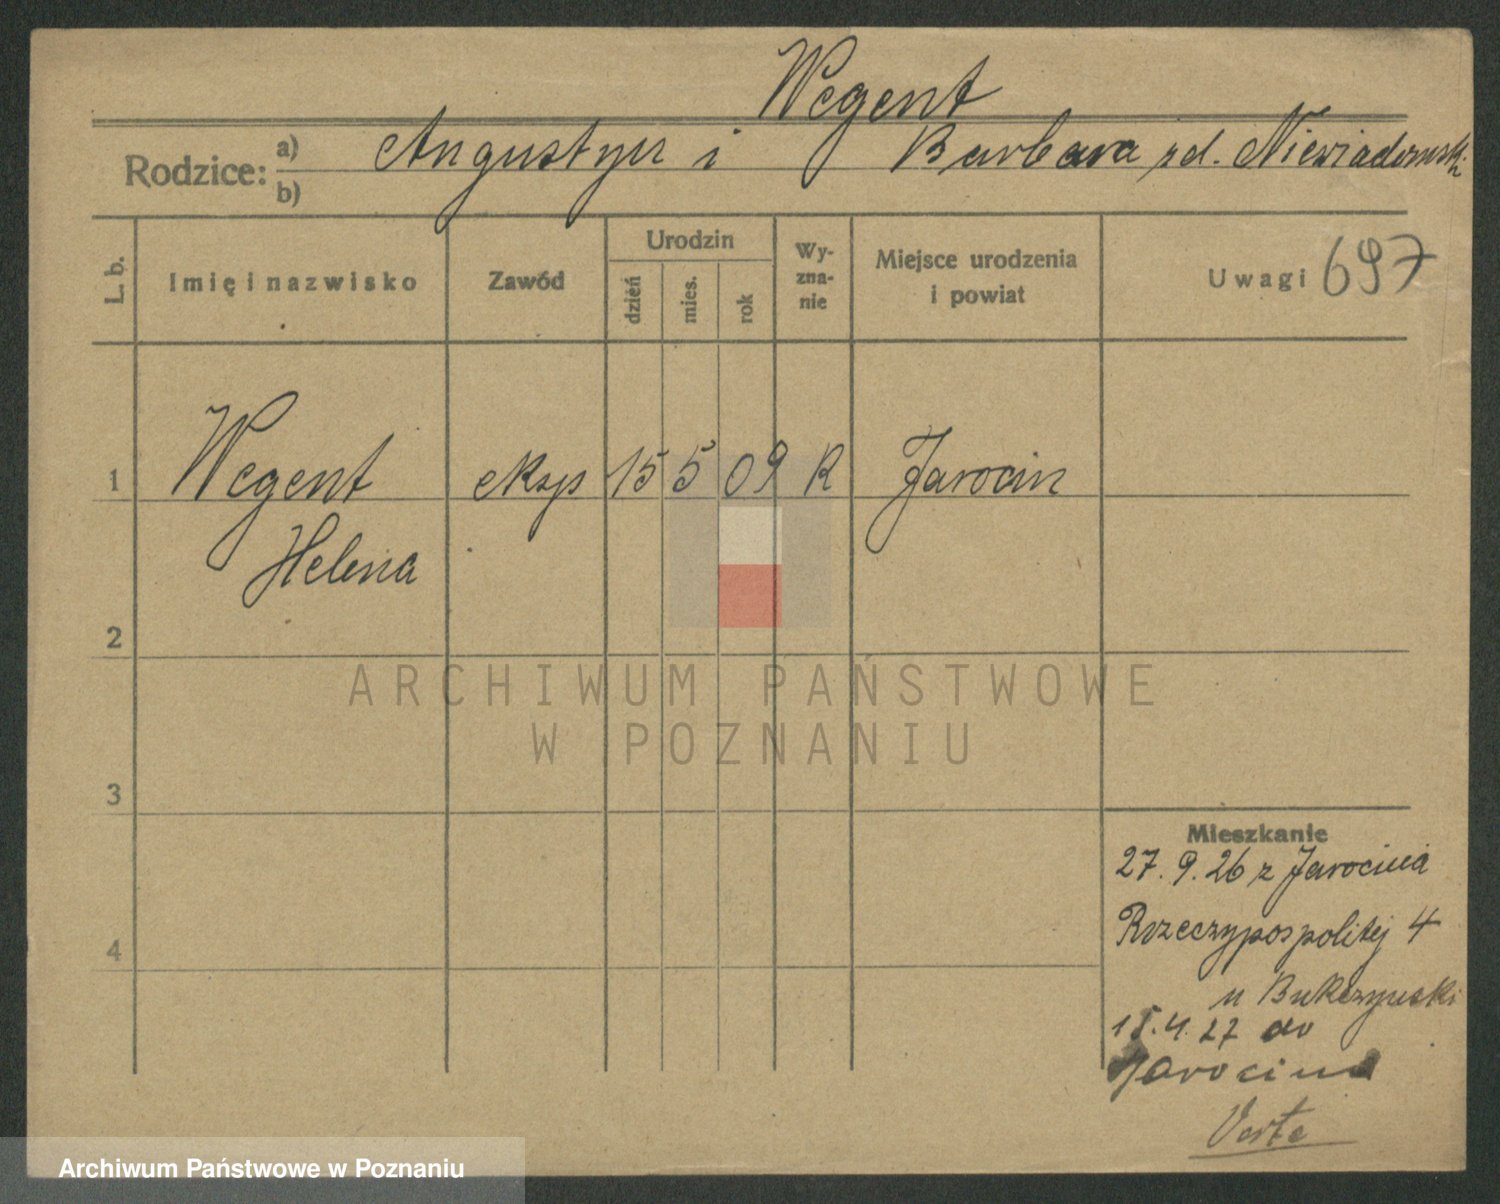 Wegent
Rodzice: a) b)
Augustyn i Barbara zd. Niewiadomsk
L. b.
Imię i nazwisko
Zawód
Urodzin
dzień
mies.
rok
Wy-
zna-
nie
Miejsce urodzenia
i powiat
Uwagi 697
1 Wegent eksp 15 5 09 R Jarocin
Helena
2
3
4
Mieszkanie
27. 9. 26 z Jarocina
Rzeczypospolitej 4
u Bukczyński
15. 4. 27 do
Jarocina
Verte
ARCHIWUM PAŃSTWOWE
W POZNANIU
Archiwum Państwowe w Poznaniu